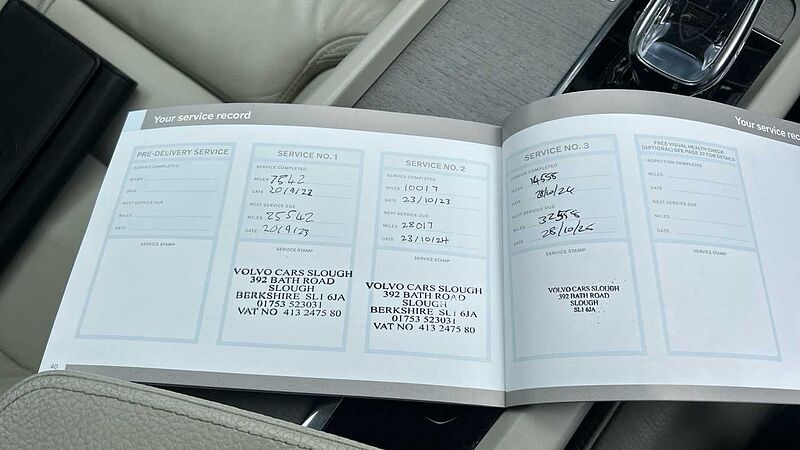 Your service record
Your service rec
PRE-DELIVERY SERVICE
SERVICE COMPLETED
MILES
DATE
NEXT SERVICE DUE
MILES
DATE
SERVICE STAMP
SERVICE NO. 1
SERVICE COMPLETED
MILES 7542
DATE 20/9/22
NEXT SERVICE DUE
MILES 25542
DATE 20/9/23
SERVICE STAMP
VOLVO CARS SLOUGH
392 BATH ROAD
SLOUGH
BERKSHIRE SL1 6JA
01753 523031
VAT NO 413 2475 80
SERVICE NO. 2
SERVICE COMPLETED
MILES 10017
DATE 23/10/23
NEXT SERVICE DUE
MILES 28017
DATE 23/10/24
SERVICE STAMP
VOLVO CARS SLOUGH
392 BATH ROAD
SLOUGH
BERKSHIRE SL1 6JA
01753 523031
VAT NO 413 2475 80
SERVICE NO. 3
SERVICE COMPLETED
MILES 14558
DATE 28/10/24
NEXT SERVICE DUE
MILES 32558
DATE 28/10/25
SERVICE STAMP
VOLVO CARS SLOUGH
392 BATH ROAD
SLOUGH
SL1 6JA
FREE VISUAL HEALTH CHECK
(OPTIONAL) SEE PAGE 37 FOR DETAILS
INSPECTION COMPLETED
MILES
DATE
SERVICE STAMP
40